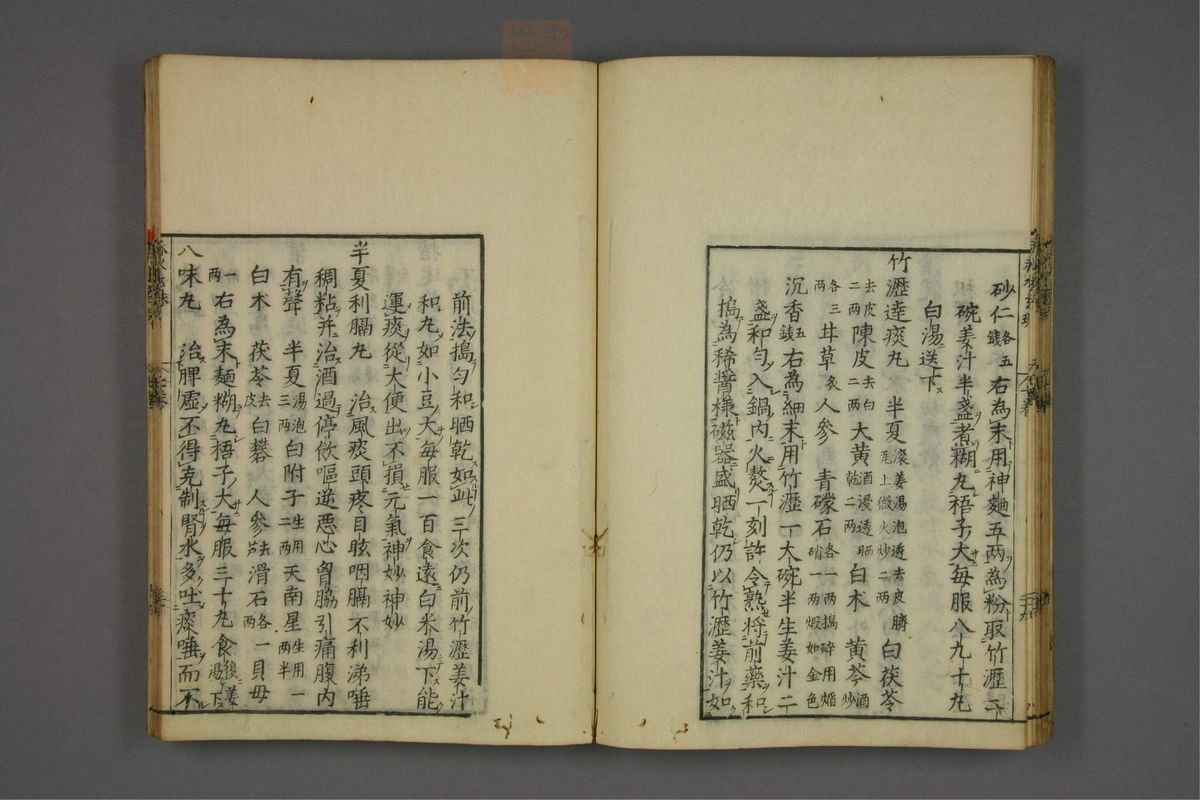 砂仁各五錢右為末用神麯五两為粉取竹瀝一
碗姜汁半盞煮糊丸梧子大每服八九十丸
白湯送下
竹瀝達痰丸 半夏滚姜湯泡透去皮臍瓦上微火炒二两 白茯苓
去皮二两陳皮去白二两大黄酒浸透晒乾二两白术 黄芩酒炒
各三两甘草炙人參 青礞石各一两搗碎用焰硝一两煅如金色
沉香五錢右為細末用竹瀝一大碗半生姜汁二
盞和勻入鍋内火熬一刻許令熟将前藥和
搗為稀醬様磁器盛晒乾仍以竹瀝姜汁如
前法搗勻和晒乾如此三次仍前竹瀝姜汁
和丸如小豆大每服一百食遠白米湯下能
運痰從大便出不損元氣神妙神妙
半夏利膈丸 治風痰頭疼目眩咽膈不利涕唾
稠粘并治酒過停飲嘔逆惡心胷脇引痛腹内
有聲 半夏湯泡三两白附子生用二两天南星生用一两半
白木 茯苓去皮白礬 人參去芦滑石各一两貝母
一两右為末麺糊丸梧子大每服三十丸食後姜湯下
八味丸 治脾虚不得克制腎水多吐痰唾而不